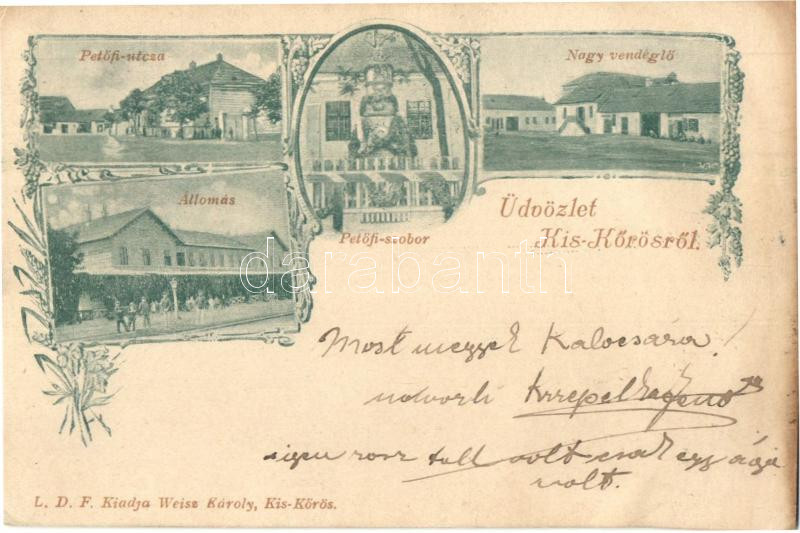 Petőfi-utcza
Nagy vendéglő
Állomás
Petőfi-szobor
Üdvözlet
Kis-Kőrösről.
darabanth
Most megyek Kalocsára!
udvozli
igen rosz toll volt csak egy ága
volt.
L. D. F. Kiadja Weisz Károly, Kis-Kőrös.